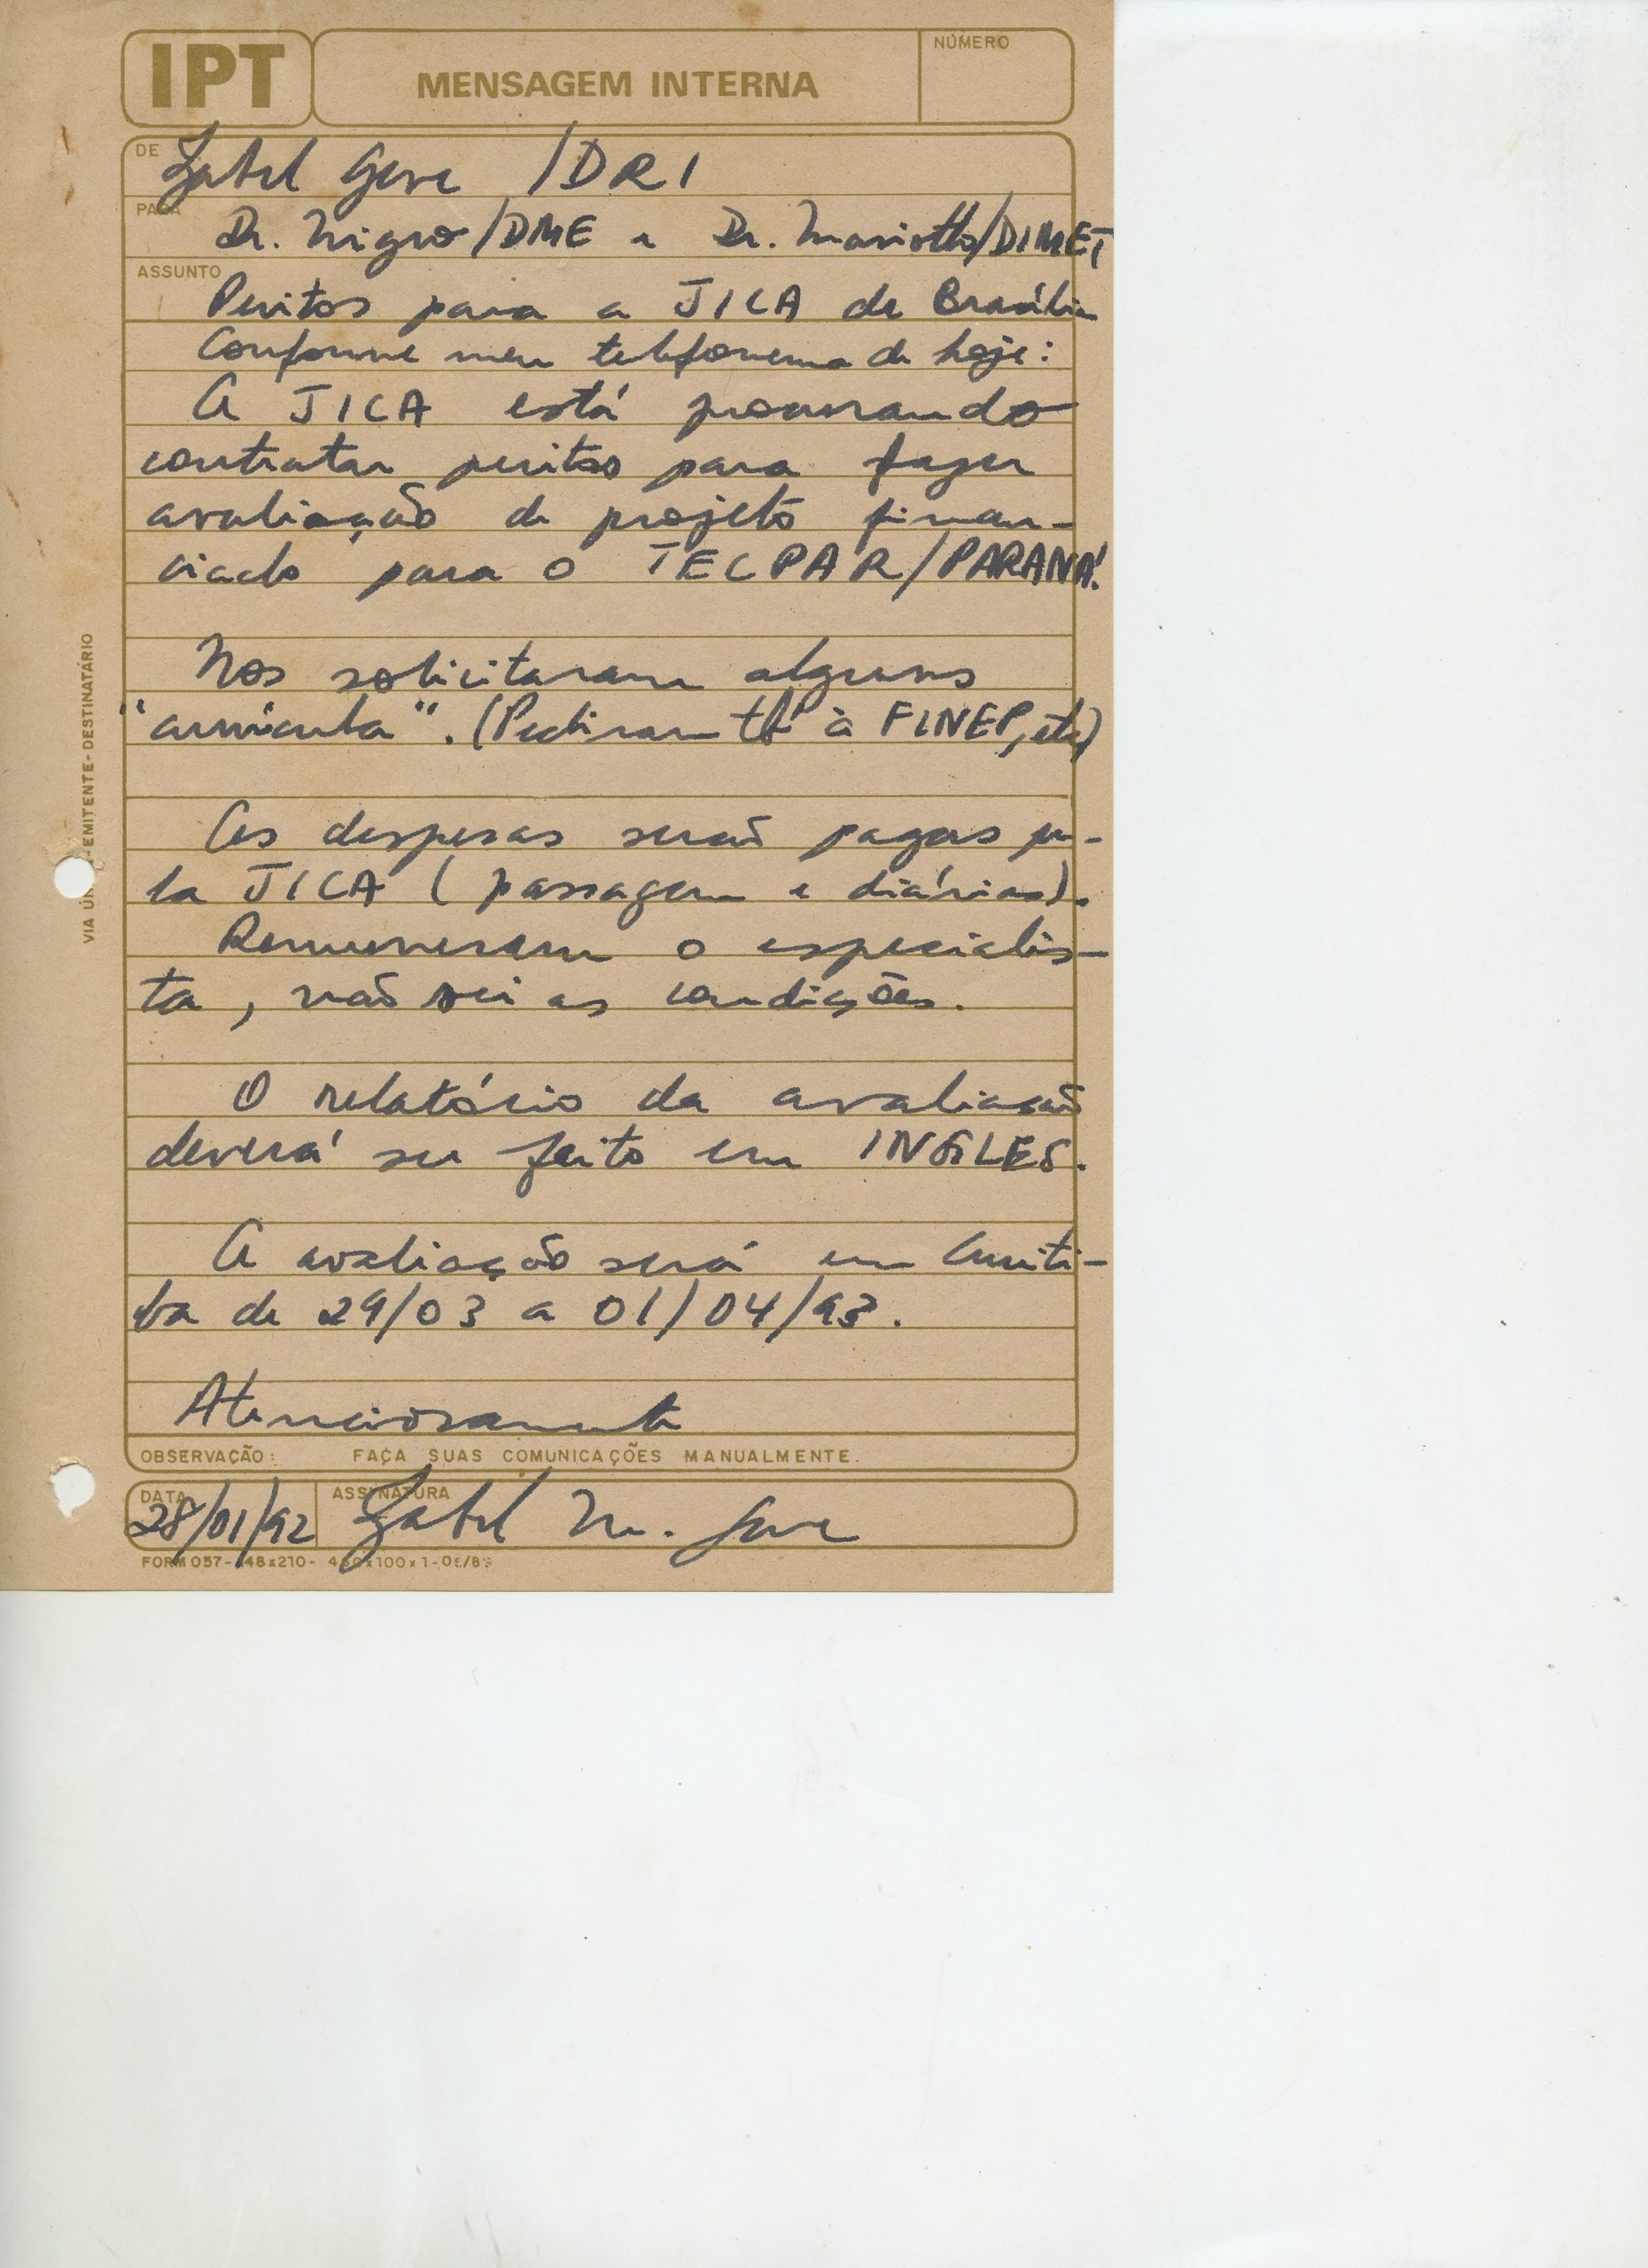 IPT
MENSAGEM INTERNA
NÚMERO
DE Izabel Geve /DRI
PARA
Dr. Nigro/DME e Dr. Mariotto/DIMET
ASSUNTO
Peritos para a JICA de Brasília
Conforme meu telefonema de hoje:
A JICA está procurando
contratar peritos para fazer
avaliação de projeto finan-
ciado para o TECPAR/PARANÁ.
Nos solicitaram alguns
"curricula". (Pediram tb à FINEP, etc)
As despesas serão pagas pe-
la JICA (passagem e diárias).
Remuneram o especialis-
ta, não sei as condições.
O relatório da avaliação
deverá ser feito em INGLES.
A avaliação será em Curiti-
ba de 29/03 a 01/04/93.
Atenciosamente
OBSERVAÇÃO: FAÇA SUAS COMUNICAÇÕES MANUALMENTE.
DATA ASSINATURA
28/01/92 Izabel M. Geve
FORM 057-
VIA EMITENTE-DESTINATÁRIO